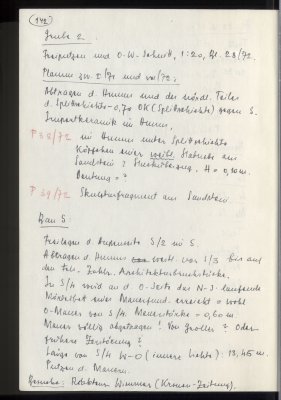 142
Grube 2.
Freiputzen und O-W-Schnitt, 1:20, Bl. 23/72.
Planum zw. 2/71 und
Abtragen d. Humus und der nördl. Teile
d. Splittschichte - 0,70 OK (Splittschichte) gegen S.
Importkeramik im Humus.
P 38/72 im Humus unter Splittschichte
Köpfchen einer weibl. Statuette aus
Sandstein ? H = 0,10 m.
Deutung = ?
P 39/72 Skulpturfragment aus Sandstein.
Bau 5:
Freilegen d. S/2 mit S.
Abtragen d. Humus westl. von S/3 bis auf
den Zahlr. Architekturbruchstücke.
In S/4 wird an d. O-Seite das N-S-laufende
Mörtelbett einer Mauerfund. erreicht = wohl
O-Mauer von S/4. Mauerstärke = 0,60 m.
Mauer völlig abgetragen! Von Groller? oder
frühere Zerstörung?
Länge von S/4 W-O (innere Lichte): 13,45 m.
Putzen d. Mauern.
Besuche: Redakteur Wimmer (Kronen-Zeitung).